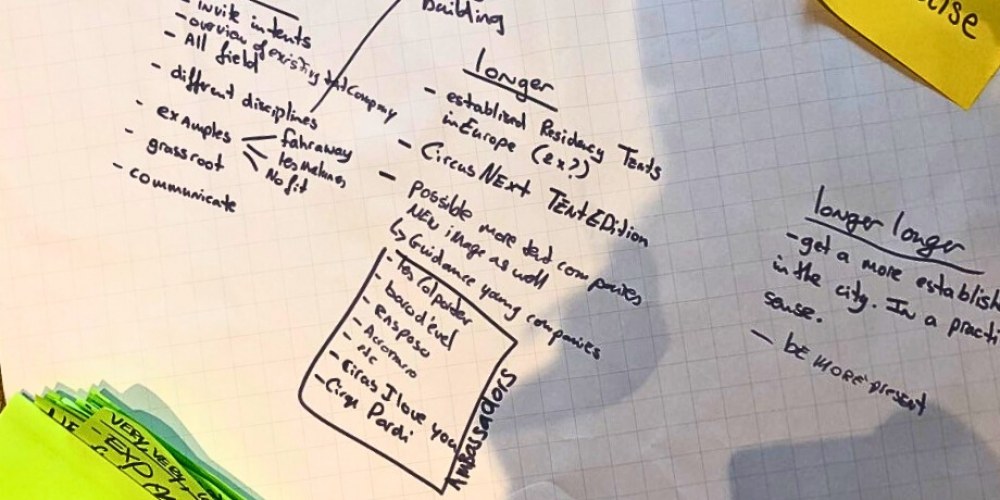 Building
- invite in tents
- overview of existing tent company
- All field
- different disciplines
- examples
fahraway
les melanes
No fit
- grassroot
- communicate
longer
- establised Residency Tents
in Europe (ex?)
- Circus NExt TEnt EDition
- possible more tent companies
NEW image as well
↳ Guidance young companies
- baro d'evel
- Rasposo
- etc
- Circus I love you
- Cirque Pardi
Ambassadors
longer longer
- get a more establish
in the city. In a practi
sense.
- be more present
VERY, VERY
- EXP